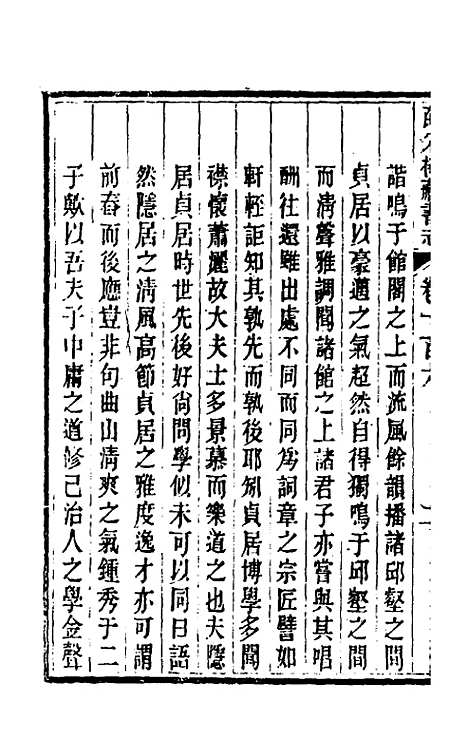 皕宋樓藏書志 卷一百六
諧鳴于館閣之上而流風餘韻播諸邱壑之間
貞居以豪邁之氣超然自得獨鳴于邱壑之間
而淸聲雅調聞諸館之上諸君子亦嘗與其唱
酬往還雖出處不同而同爲詞章之宗匠譬如
軒輊詎知其孰先而孰後耶矧貞居博學多聞
襟懷蕭灑故大夫士多景慕而樂道之也夫隱
居貞居時世先後好尙問學似未可以同日語
然隱居之淸風高節貞居之雅度逸才亦可謂
前舂而後應豈非句曲山淸爽之氣鍾秀于二
子歟以吾夫子中庸之道修己治人之學金聲